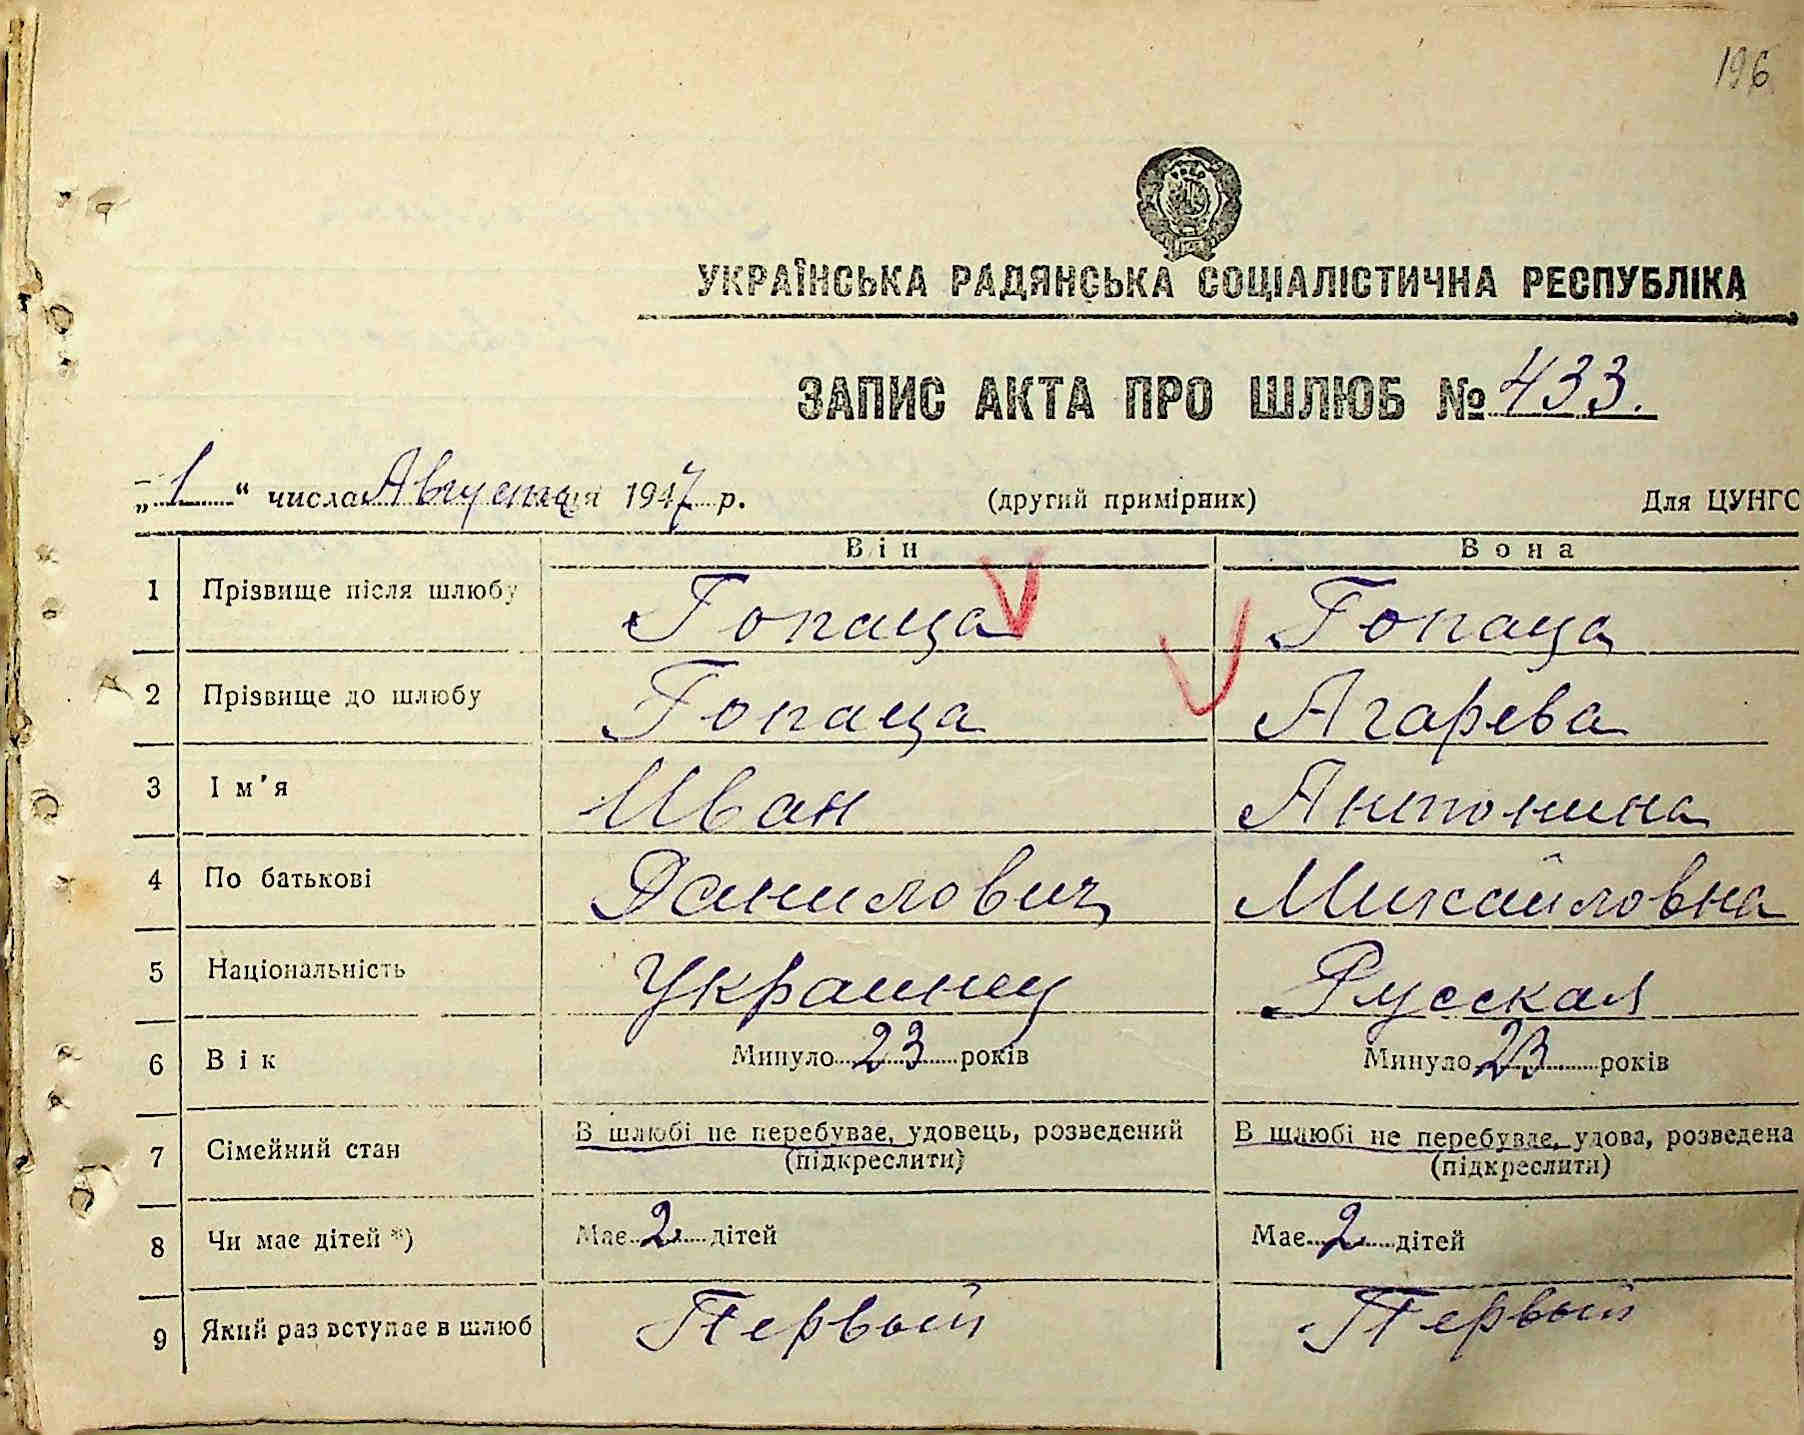 196
УКРАЇНСЬКА РАДЯНСЬКА СОЦІАЛІСТИЧНА РЕСПУБЛІКА
ЗАПИС АКТА ПРО ШЛЮБ № 433.
„1“ числа Августа 1947 р. (другий примірник) Для ЦУНГО
Він Вона
1 Прізвище після шлюбу Гопаца Гопаца
2 Прізвище до шлюбу Гопаца Агарева
3 Ім'я Иван Антонина
4 По батькові Данилович Михайловна
5 Національність Украинец Русская
6 Вік Минуло 23 років Минуло 23 років
7 Сімейний стан В шлюбі не перебуває, удовець, розведений В шлюбі не перебуває, удова, розведена
(підкреслити) (підкреслити)
8 Чи має дітей *) Має 2 дітей Має 2 дітей
9 Який раз вступає в шлюб Первый Первый